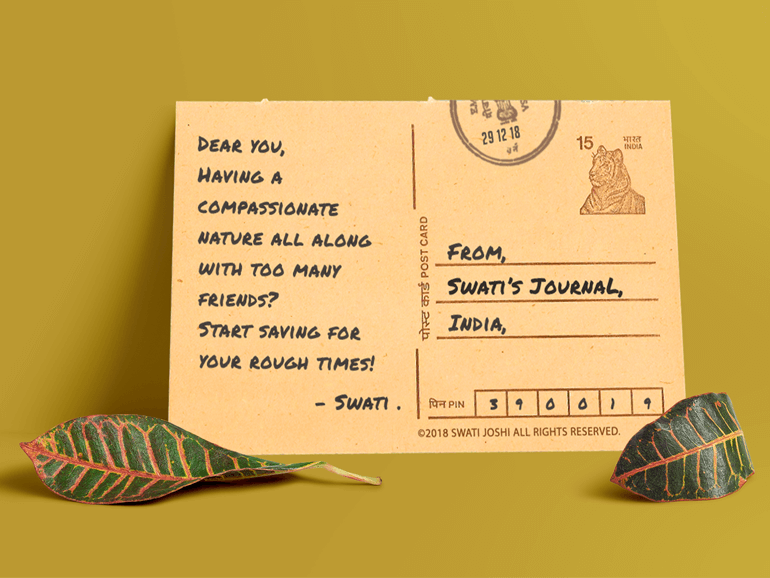 DEAR YOU,
HAVING A
COMPASSIONATE
NATURE ALL ALONG
WITH TOO MANY
FRIENDS?
START SAVING FOR
YOUR ROUGH TIMES!
- SWATI .
पोस्ट कार्ड POST CARD
29 12 18
15
भारत
INDIA
FROM,
SWATI'S JOURNAL,
INDIA,
पिन PIN 3 9 0 0 1 9
©2018 SWATI JOSHI ALL RIGHTS RESERVED.